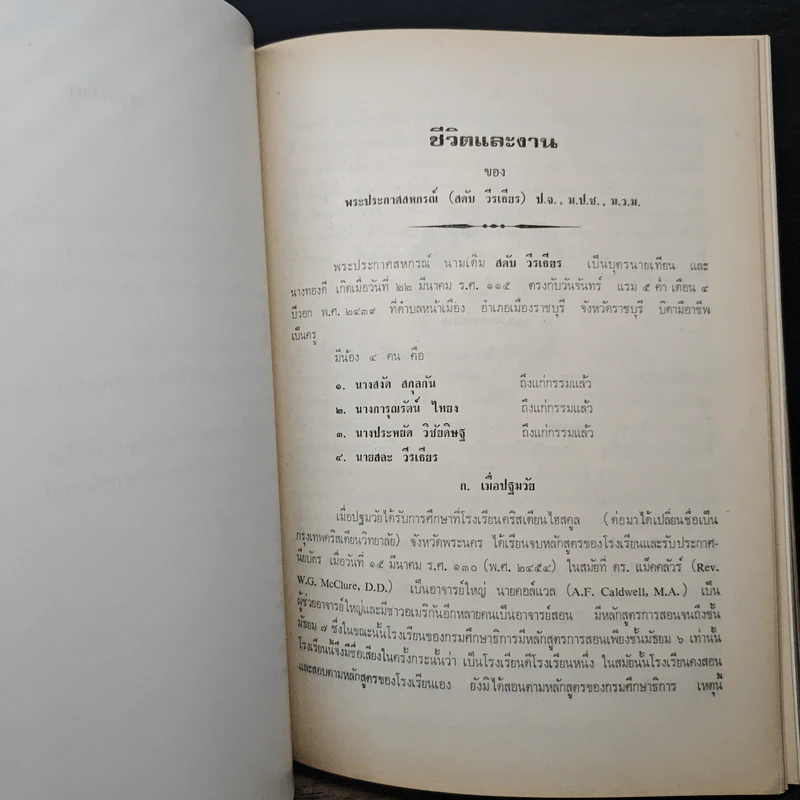 ชีวิตและงาน
ของ
พระประกาศสหกรณ์ (สดับ วีรเธียร) ป.จ., ม.ป.ช., ม.ว.ม.
พระประกาศสหกรณ์ นามเดิม สดับ วีรเธียร เป็นบุตรนายเทียน และ
นางทองดี เกิดเมื่อวันที่ ๒๒ มีนาคม ร.ศ. ๑๑๕ ตรงกับวันจันทร์ แรม ๕ ค่ำ เดือน ๔
ปีวอก พ.ศ. ๒๔๓๙ ที่ตำบลหน้าเมือง อำเภอเมืองราชบุรี จังหวัดราชบุรี บิดามีอาชีพ
เป็นครู
มีน้อง ๔ คน คือ
๑. นางสงัด สกุลกัน ถึงแก่กรรมแล้ว
๒. นางการุณรัตน์ ไทยง ถึงแก่กรรมแล้ว
๓. นางประหยัด วิชัยดิษฐ ถึงแก่กรรมแล้ว
๔. นายสละ วีรเธียร
ก. เมื่อปฐมวัย
เมื่อปฐมวัยได้รับการศึกษาที่โรงเรียนคริสเตียนไฮสคูล (ต่อมาได้เปลี่ยนชื่อเป็น
กรุงเทพคริสเตียนวิทยาลัย) จังหวัดพระนคร ได้เรียนจบหลักสูตรของโรงเรียนและรับประกาศ-
นียบัตร เมื่อวันที่ ๑๕ มีนาคม ร.ศ. ๑๓๐ (พ.ศ. ๒๔๕๔) ในสมัยที่ ดร. แม็คคลัวร์ (Rev.
W.G. McClure, D.D.) เป็นอาจารย์ใหญ่ นายคอล์แวล (A.F. Caldwell, M.A.) เป็น
ผู้ช่วยอาจารย์ใหญ่และมีชาวอเมริกันอีกหลายคนเป็นอาจารย์สอน มีหลักสูตรการสอนจนถึงชั้น
มัธยม ๗ ซึ่งในขณะนั้นโรงเรียนของกรมศึกษาธิการมีหลักสูตรการสอนเพียงชั้นมัธยม ๖ เท่านั้น
โรงเรียนนี้จึงมีชื่อเสียงในครั้งกระนั้นว่า เป็นโรงเรียนดีโรงเรียนหนึ่ง ในสมัยนั้นโรงเรียนคงสอน
และสอบตามหลักสูตรของโรงเรียนเอง ยังมิได้สอนตามหลักสูตรของกรมศึกษาธิการ เหตุนี้